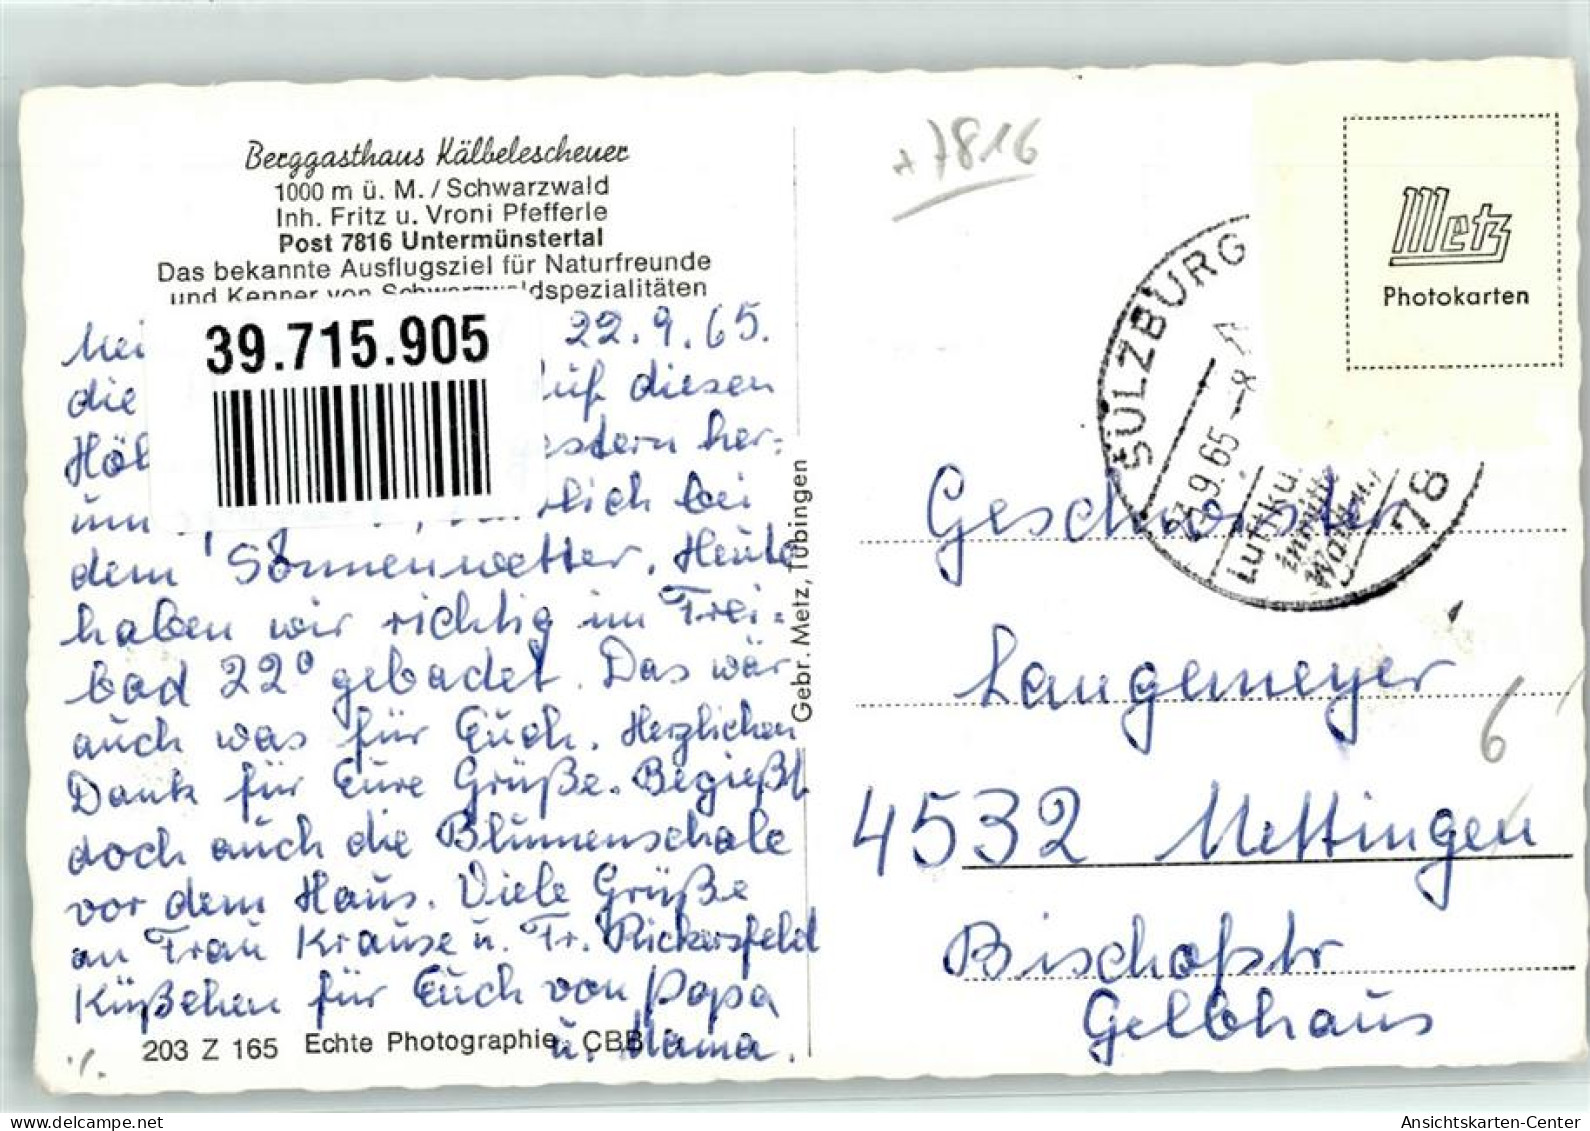 Berggasthaus Kälbelescheuer
1000 m ü. M. / Schwarzwald
Inh. Fritz u. Vroni Pfefferle
Post 7816 Untermünstertal
Das bekannte Ausflugsziel für Naturfreunde
und Kenner von Schwarzwaldspezialitäten
39.715.905
22.9.65.
die diesen
her-
bei
dem Sonnenwetter. Heute
haben wir richtig im Frei-
bad 22° gebadet. Das wär
auch was für Euch. Herzlichen
Dank für Eure Grüße. Begießt
doch auch die Blumenschale
vor dem Haus. Viele Grüße
an Frau Krause u. Fr. Rickersfeld
Küßchen für Euch von Papa
u. Mama.
203 Z 165 Echte Photographie. CBB
Gebr. Metz, Tübingen
+ 7816
Metz
Photokarten
SULZBURG
23.9.65-8
Luftku
inmitte
78
Geschwister
Langemeyer
6
4532 Mettingen
Bischofstr
Gelbhaus
www.delcampe.net
Ansichtskarten-Center